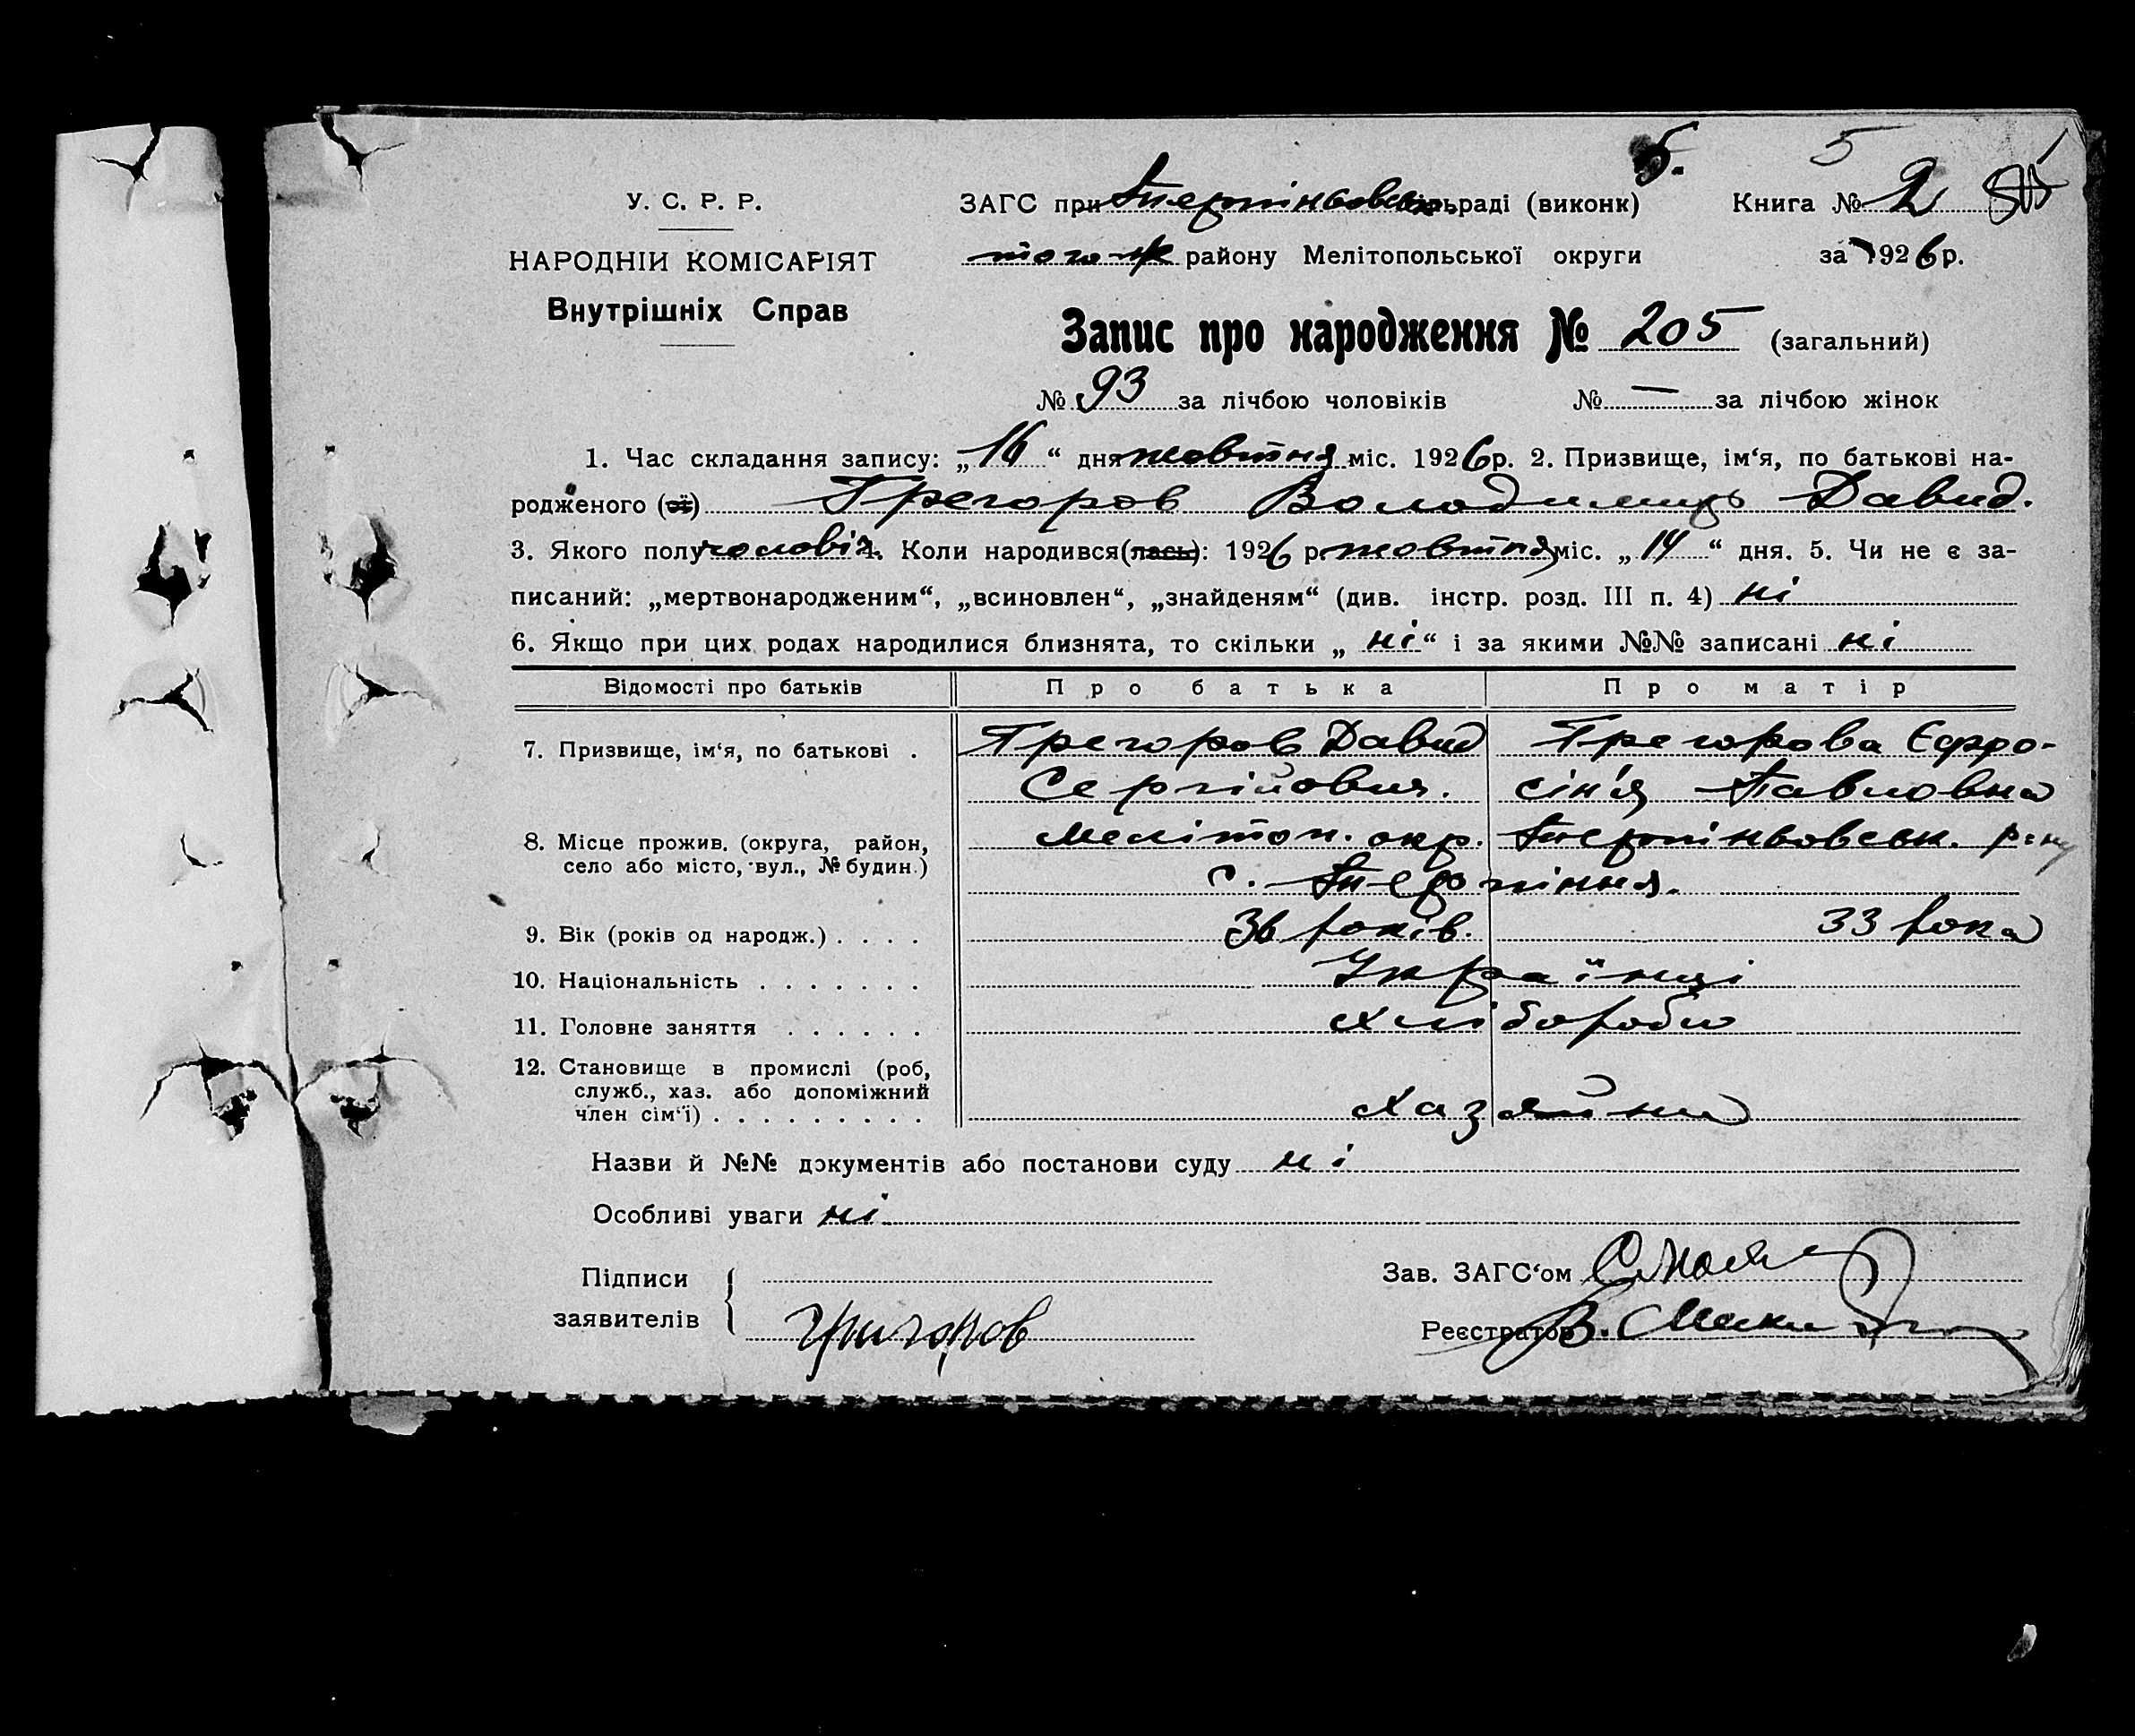 5. 5
У. С. Р. Р. ЗАГС при Терпіньовськ. сільраді (виконк) Книга № 2
НАРОДНІЙ КОМІСАРІЯТ того ж району Мелітопольської округи за 1926 р.
Внутрішніх Справ
Запис про народження № 205 (загальний)
№ 93 за лічбою чоловіків № — за лічбою жінок
1. Час складання запису: „16“ дня жовтня міс. 1926 р. 2. Призвище, ім‘я, по батькові на-
родженого (ої) Грегоров Володимир Давид.
3. Якого полу чоловіч. 4. Коли народився(лась): 1926 р. жовтня міс. „14“ дня. 5. Чи не є за-
писаний: „мертвонародженим“, „всиновлен“, „знайденям“ (див. інстр. розд. III п. 4) ні
6. Якщо при цих родах народилися близнята, то скільки „ні“ і за якими №№ записані ні
Відомості про батьків Про батька Про матір
7. Призвище, ім‘я, по батькові . Грегоров Давид Грегорова Єфро-
Сергійович. сін'я Павловна
8. Місце прожив. (округа, район, Меліто́п. окр. Терпіньовськ. р-ну
село або місто, вул., № будин.) с. Терпіння.
9. Вік (років од народж.) . . . . 36 років. 33 рока
10. Національність . . . . . . . Українці
11. Головне заняття . . . . . . Хлібороби
12. Становище в промислі (роб,
служб., хаз. або допоміжний
член сім‘ї) . . . . . . . . . Хазяйни
Назви й №№ документів або постанови суду ні
Особливі уваги ні
Підписи Зав. ЗАГС‘ом
заявителів Григоров Реєстратор В.